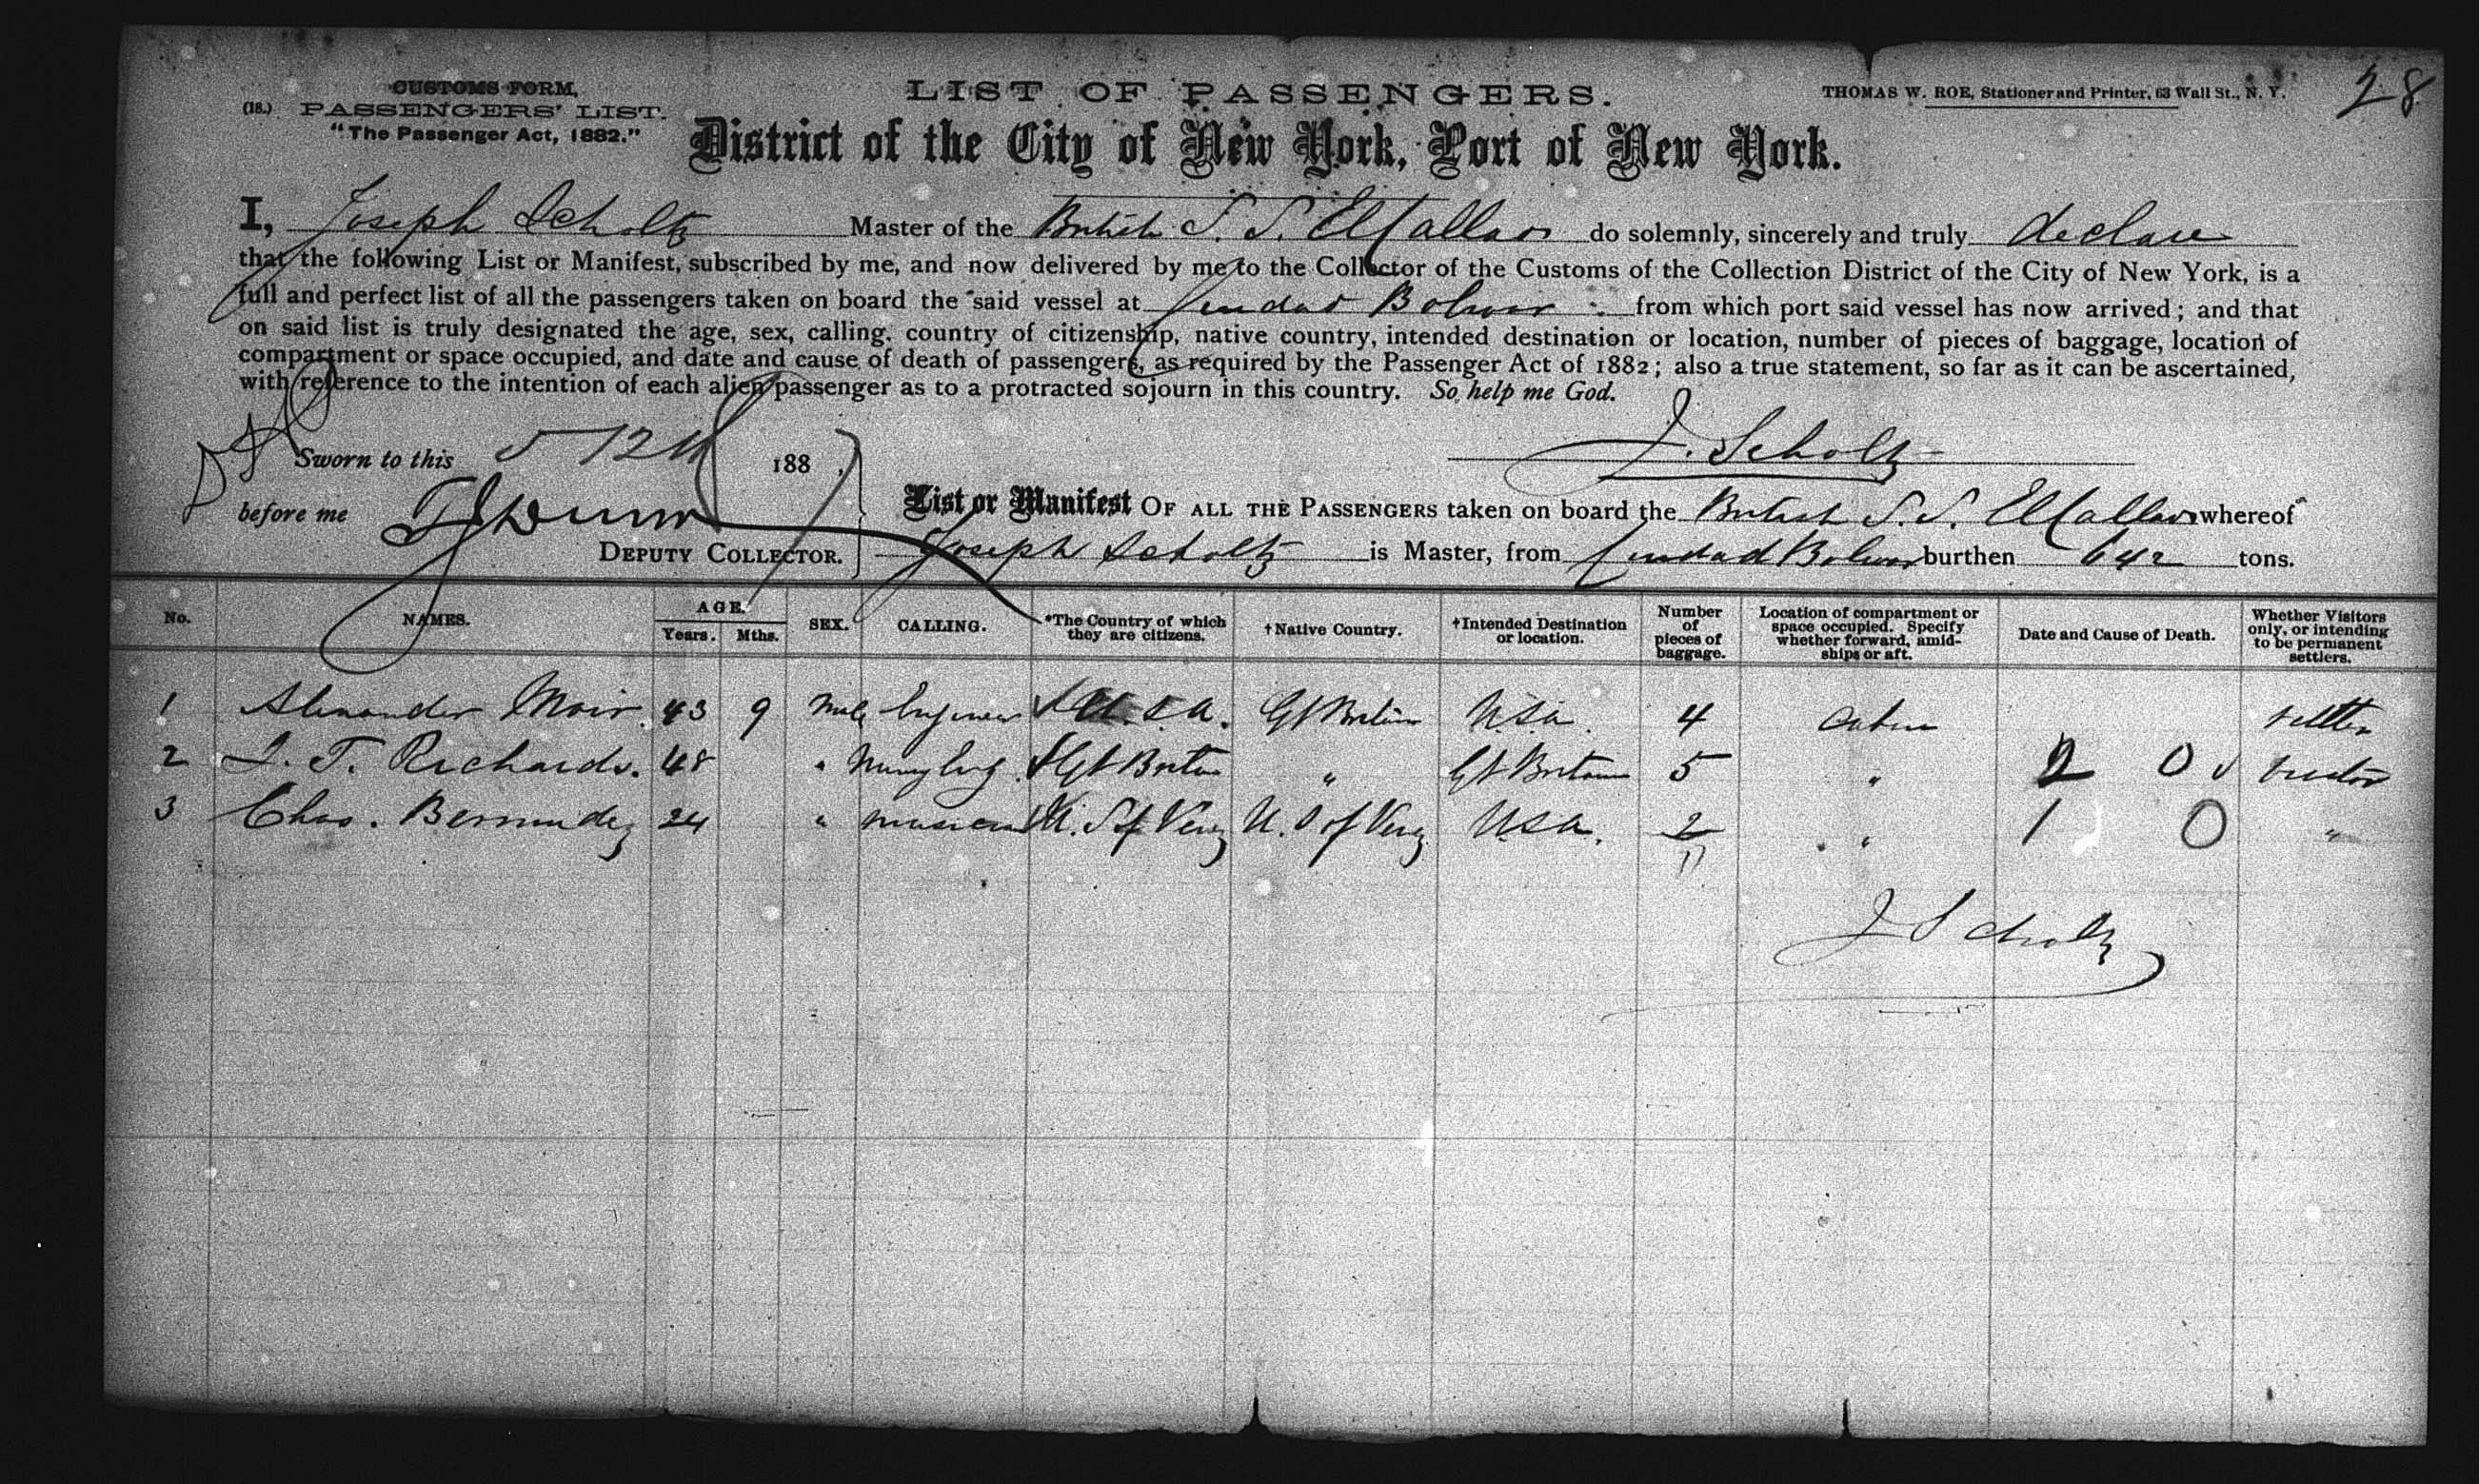 28
CUSTOMS FORM,
(18.) PASSENGERS' LIST.
"The Passenger Act, 1882."
LIST OF PASSENGERS.
THOMAS W. ROE, Stationer and Printer, 63 Wall St., N. Y.
District of the City of New York, Port of New York.
I, Joseph Scholtz Master of the British S. S. El Callao do solemnly, sincerely and truly declare
that the following List or Manifest, subscribed by me, and now delivered by me to the Collector of the Customs of the Collection District of the City of New York, is a
full and perfect list of all the passengers taken on board the said vessel at Ciudad Bolivar from which port said vessel has now arrived; and that
on said list is truly designated the age, sex, calling, country of citizenship, native country, intended destination or location, number of pieces of baggage, location of
compartment or space occupied, and date and cause of death of passengers, as required by the Passenger Act of 1882; also a true statement, so far as it can be ascertained,
with reference to the intention of each alien passenger as to a protracted sojourn in this country. So help me God.
J. Scholtz
Sworn to this 12th 1887
before me
DEPUTY COLLECTOR.
List or Manifest OF ALL THE PASSENGERS taken on board the British S. S. El Callao whereof
Joseph Scholtz is Master, from Ciudad Bolivar burthen 642 tons.
No. NAMES. AGE. Years. Mths. SEX. CALLING. *The Country of which they are citizens. †Native Country. †Intended Destination or location. Number of pieces of baggage. Location of compartment or space occupied. Specify whether forward, amidships or aft. Date and Cause of Death. Whether Visitors only, or intending to be permanent settlers.
1 Alexander Moir. 43 9 Male Engineer U.S.A. Gt Britain U.S.A. 4 Cabin settler
2 J. T. Richards. 48 " Mining Eng. Gt Britain " Gt Britain 5 " 2 0 visitor
3 Chas. Bermudez 24 " musician U. S of Venz U. S of Venz U.S.A. 2 " 1 0 "
11
J Scholtz